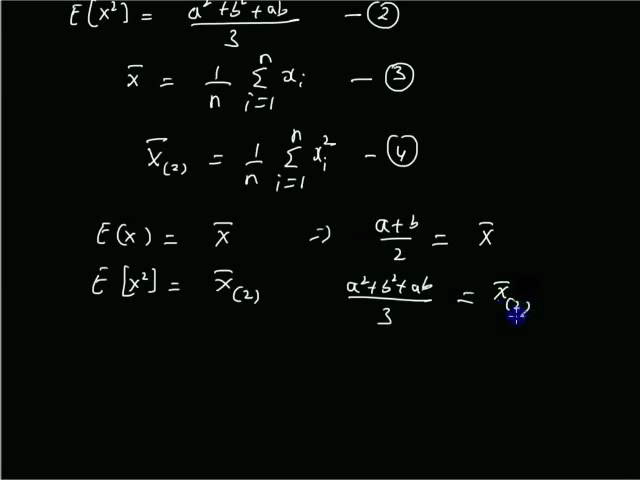 E[x²] = a²+b²+ab / 3 — ②
x̄ = 1/n Σ_{i=1}^{n} xᵢ — ③
X̄₍₂₎ = 1/n Σ_{i=1}^{n} xᵢ² — ④
E(x) = X̄ ⇒ a+b / 2 = X̄
E[x²] = X̄₍₂₎ a²+b²+ab / 3 = X̄₍₂₎